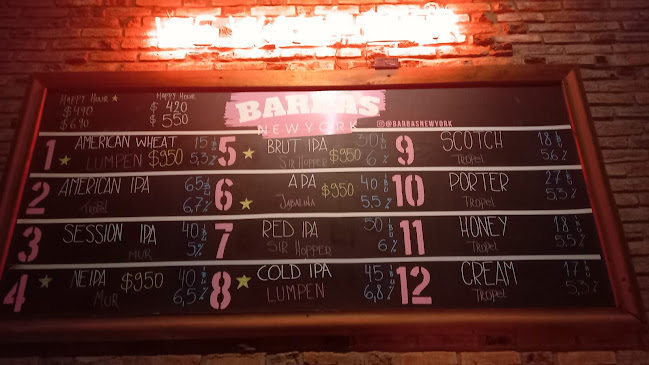 HAPPY HOUR ★
$490
$690
HAPPY HOUR
$ 420
$ 550
BARBAS
NEW YORK
@BARBASNEWYORK
1 AMERICAN WHEAT 15 IBU
★ LUMPEN $950 5,3%
2 AMERICAN IPA 65 IBU
Tropel 6,7%
3 SESSION IPA 40 IBU
MUR 5%
4 ★ NEIPA $950 40 IBU
MUR 6,5%
5 BRUT IPA 30 IBU
★ SIR HOPPER $950 6%
6 APA $950 40 IBU
★ JABALINA 5,5%
7 RED IPA 50 IBU
SIR HOPPER 6%
8 ★ COLD IPA 45 IBU
LUMPEN 6,8%
9 SCOTCH 18 IBU
Tropel 5.6%
10 PORTER 27 IBU
Tropel 5,5%
11 HONEY 18 IBU
Tropel 5,5%
12 CREAM 17 IBU
Tropel 5,3%